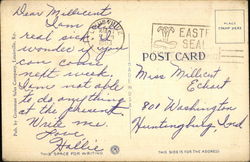 Dear Millicent
I am
real sick
wonder if you
can come
next week.
I'm not able
to do anything
at the present
Write me
Love
Hallie
THIS SPACE FOR WRITING
EASTE
SEAL
POST CARD
Miss Millicent
Eckert
801 Washington
Huntingburg, Ind
THIS SIDE IS FOR THE ADDRESS